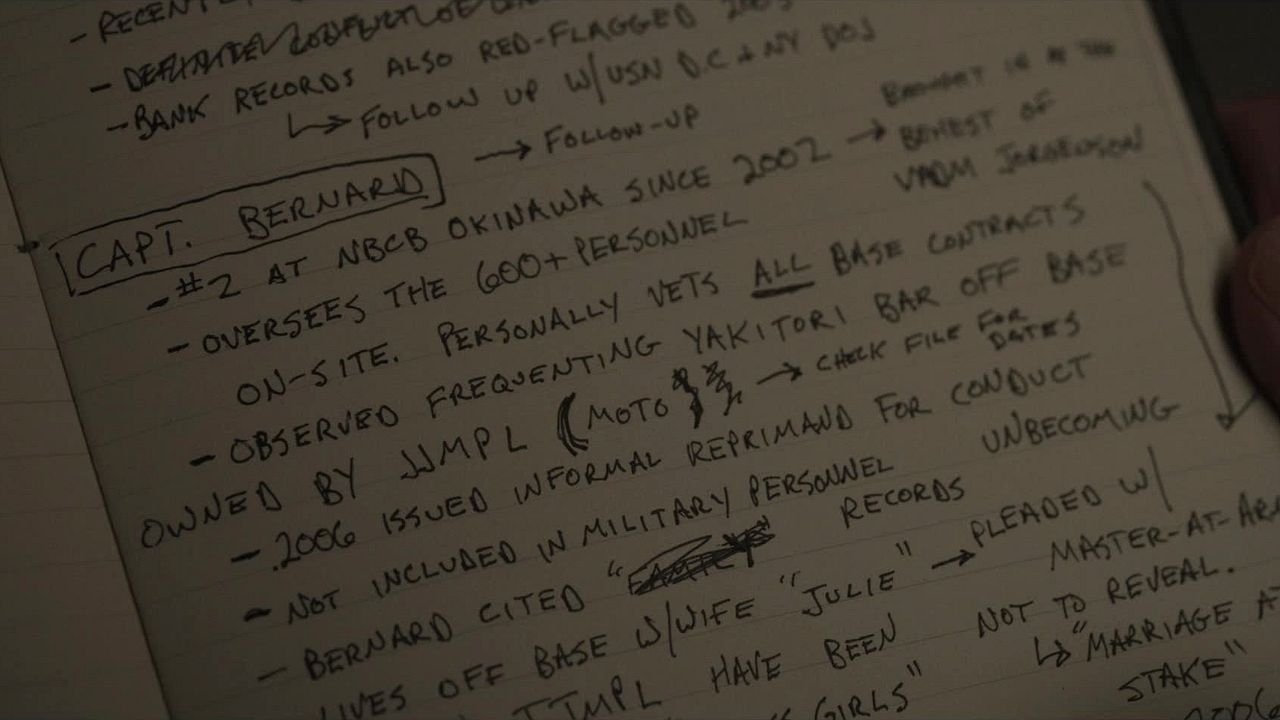 - RECENT
- BANK RECORDS ALSO RED-FLAGGED 2005
↳ FOLLOW UP W/USN D.C & NY DOJ
CAPT. BERNARD → FOLLOW-UP
- #2 AT NBCB OKINAWA SINCE 2002 → BROUGHT IN AT THE
BEHEST OF
VADM JORGENSON
- OVERSEES THE 600+ PERSONNEL
ON-SITE. PERSONALLY VETS ALL BASE CONTRACTS
- OBSERVED FREQUENTING YAKITORI BAR OFF BASE
OWNED BY JJMPL (MOTO → CHECK FILE FOR
DATES
- 2006 ISSUED INFORMAL REPRIMAND FOR CONDUCT
UNBECOMING
- NOT INCLUDED IN MILITARY PERSONNEL
RECORDS
- BERNARD CITED " " → PLEADED W/
MASTER-AT-AR
NOT TO REVEAL.
↳ "MARRIAGE AT
STAKE"
LIVES OFF BASE W/WIFE "JULIE"
JJMPL HAVE BEEN
GIRLS"